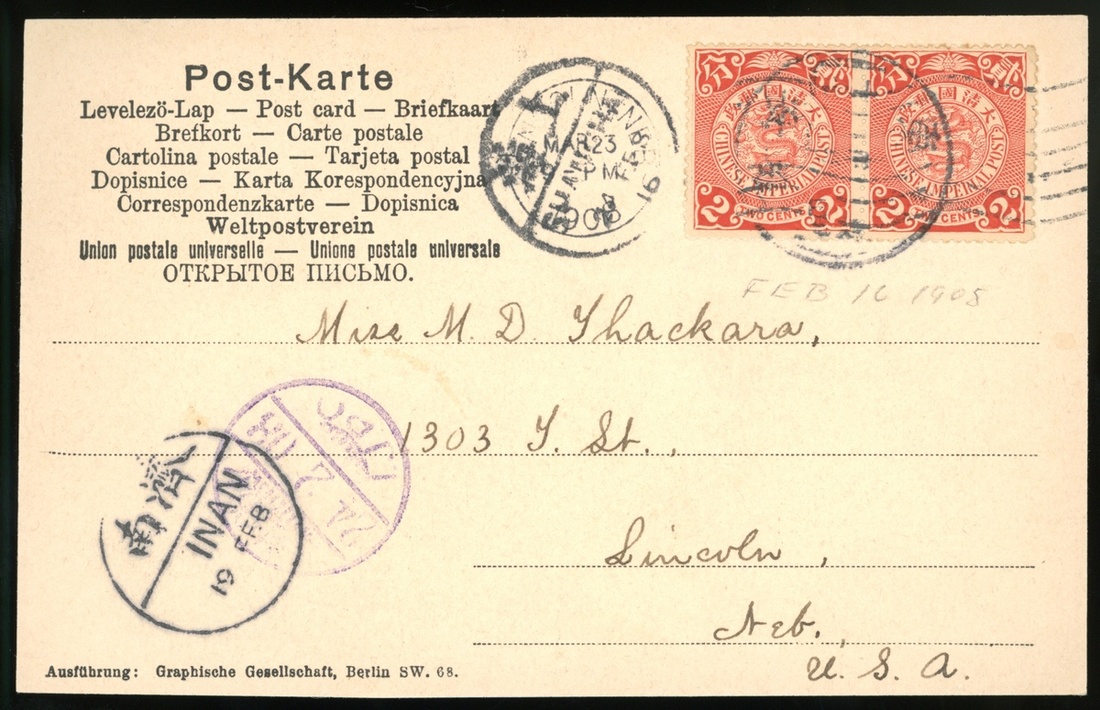 Post-Karte
Levelezö-Lap — Post card — Briefkaart
Brefkort — Carte postale
Cartolina postale — Tarjeta postal
Dopisnice — Karta Korespondencyjna
Correspondenzkarte — Dopisnica
Weltpostverein
Union postale universelle — Unione postale universale
ОТКРЫТОЕ ПИСЬМО.
MAR 23
PM
1908
16 FEB
分 政郵國清大 貳
CHINESE IMPERIAL POST
2 TWO CENTS 2
分 政郵國清大 貳
CHINESE IMPERIAL POST
2 TWO CENTS 2
FEB 16 1908
Miss M. D. Thackara,
1303 J. St.,
Lincoln,
Neb.,
U. S. A.
濟南
INAN
19 FEB
Ausführung: Graphische Gesellschaft, Berlin SW. 68.